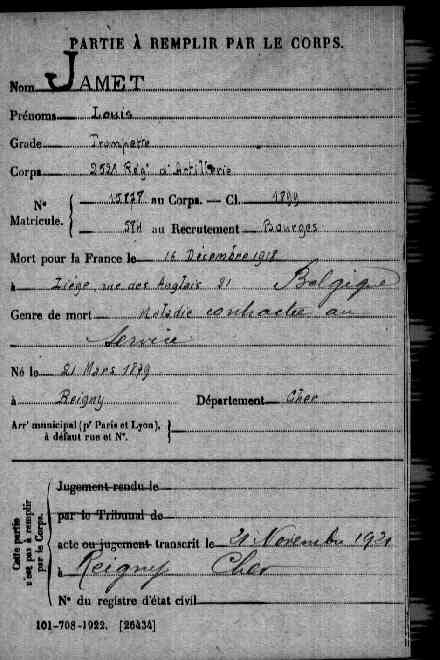 PARTIE À REMPLIR PAR LE CORPS.
Nom JAMET
Prénoms Louis
Grade Trompette
Corps 253e Régt d'Artillerie
Nº Matricule. 15877 au Corps. — Cl. 1899
584 au Recrutement Bourges
Mort pour la France le 16 Décembre 1918
à Liége, rue des Anglais 21 Belgique
Genre de mort Maladie contractée au
Service
Né le 21 Mars 1879
à Reigny Département Cher
Arrt municipal (pr Paris et Lyon),
à défaut rue et Nº.
Cette partie
n'est pas à remplir
par le Corps.
Jugement rendu le
par le Tribunal de
acte ou jugement transcrit le 21 Novembre 1920
à Reigny Cher
Nº du registre d'état civil
101-708-1922. [26434]